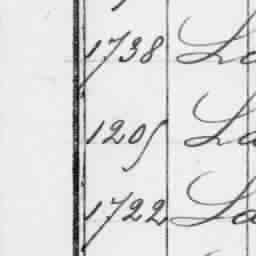 1738 La
1205 La
1722 La